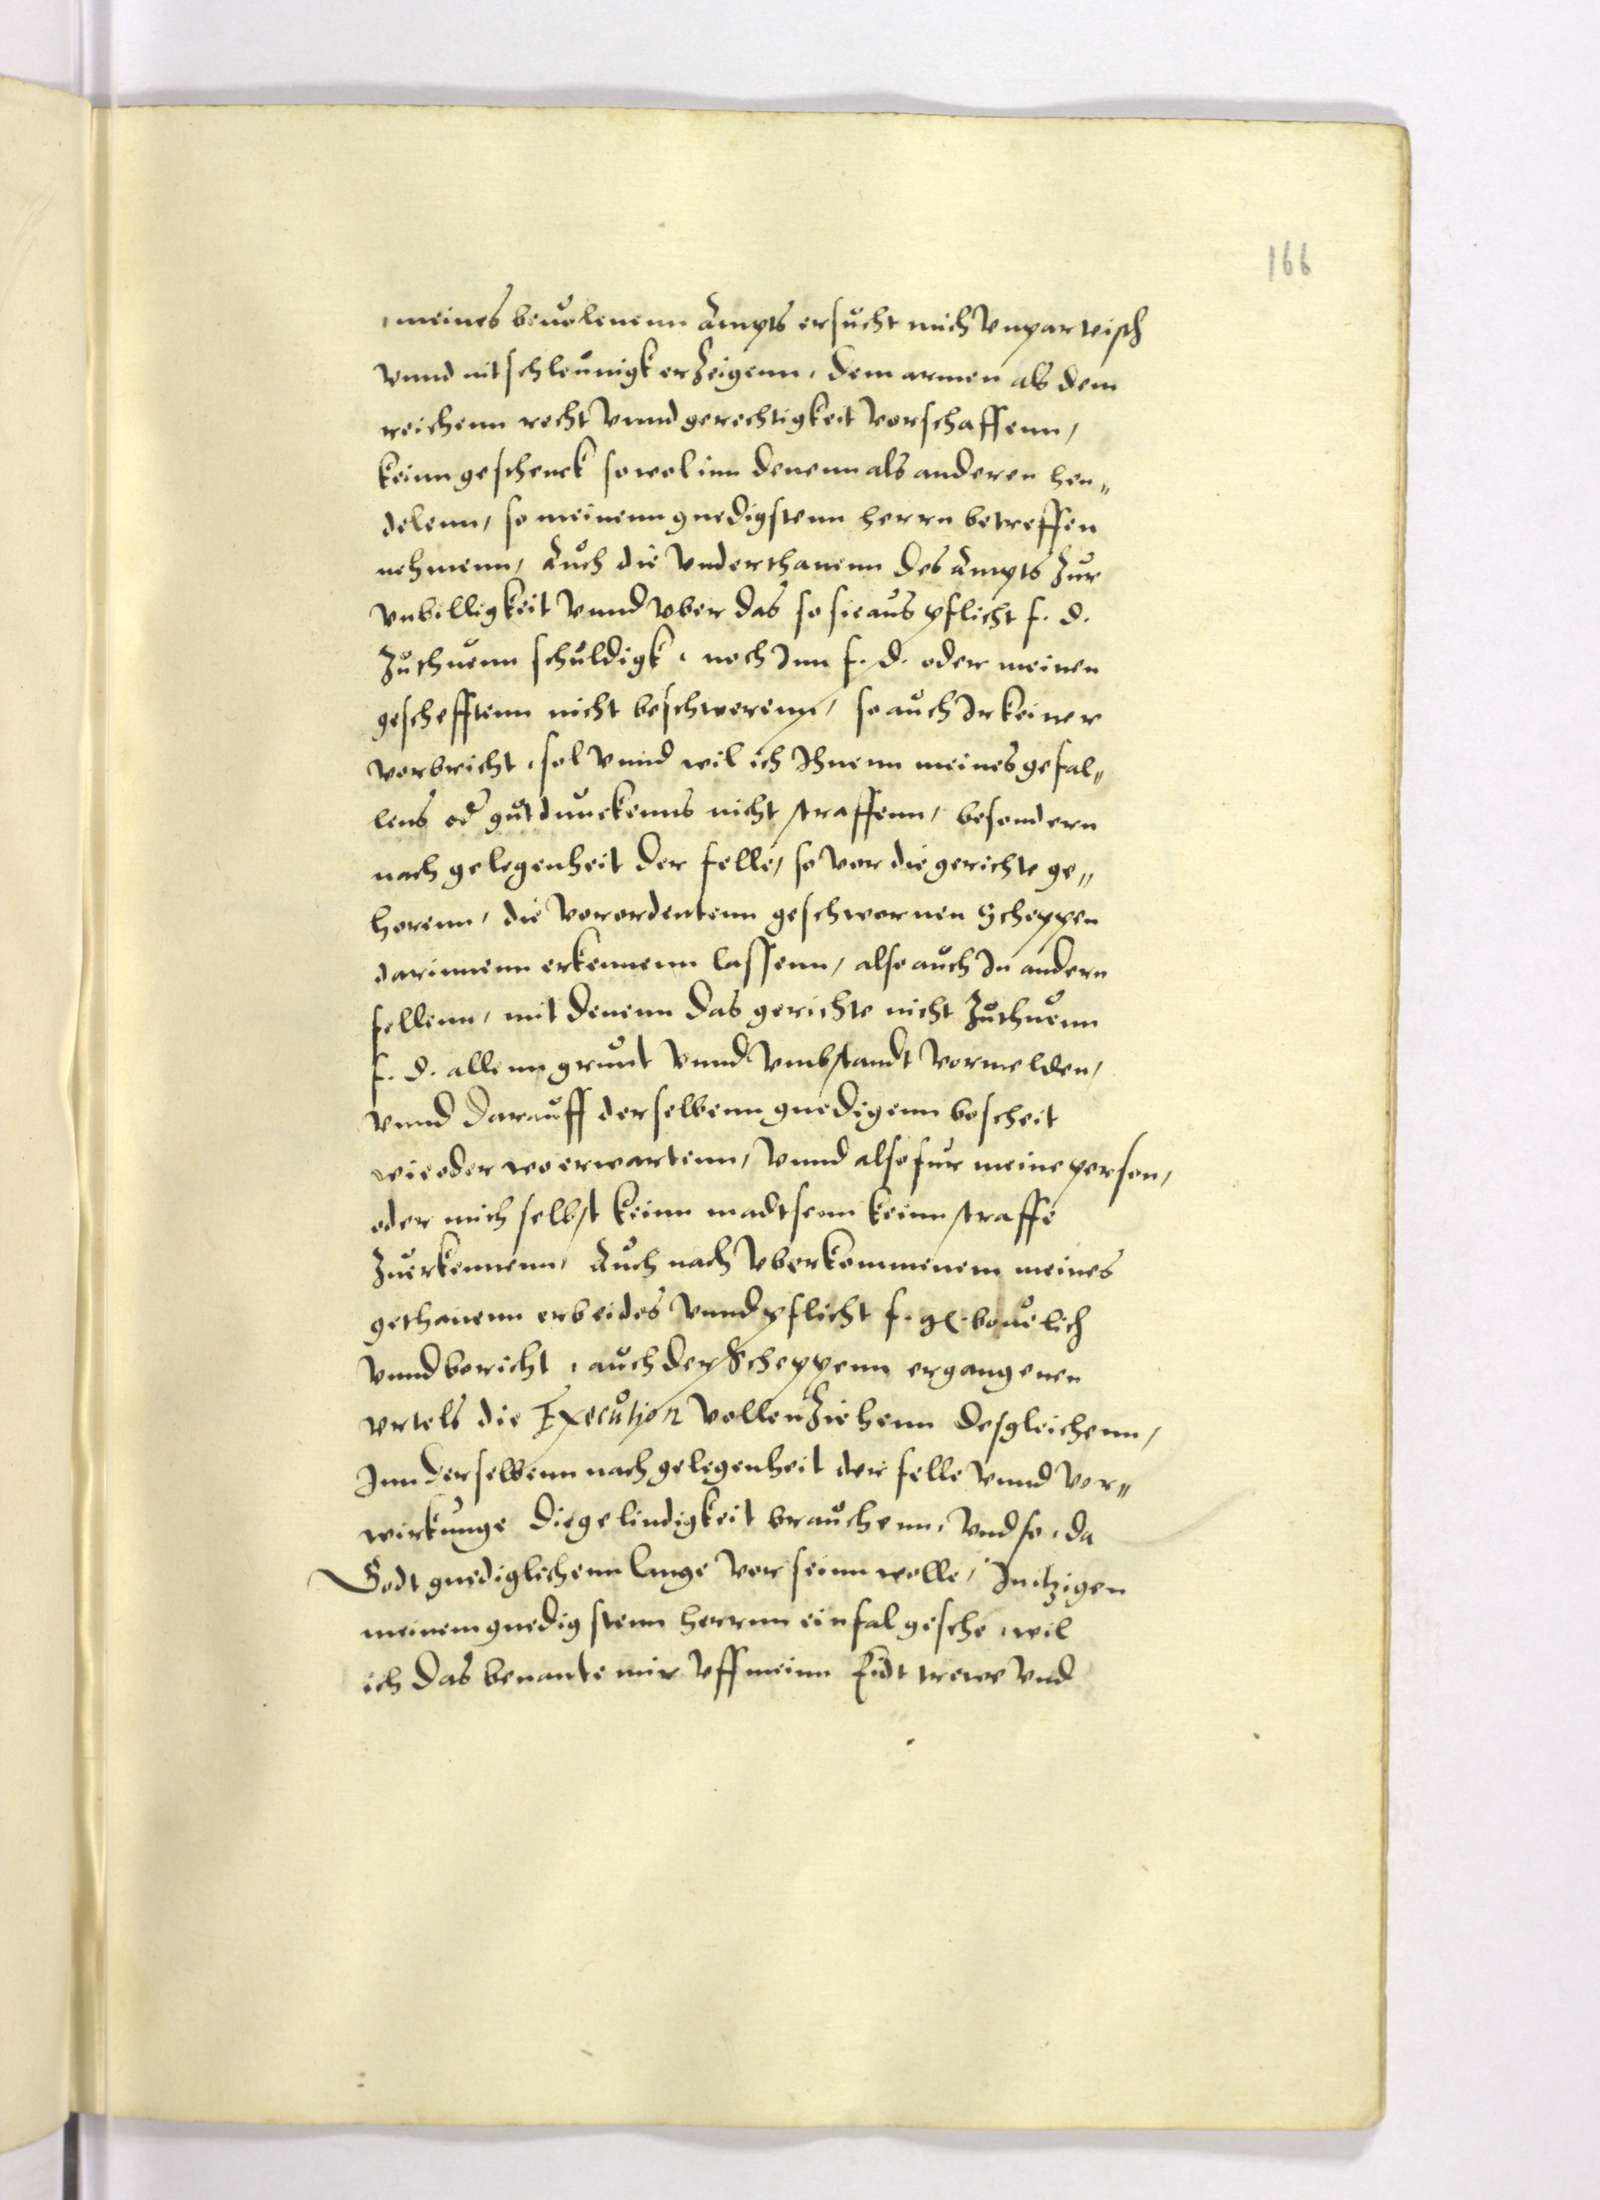 166
meines beuolenenn Ampts ersucht mich Vnparteisch
Vnnd mit schleunigk erzeigenn, dem armen als dem
reichenn recht Vnnd gerechtigkeit Vorschaffenn,
keinn geschenck so wol inn denenn als anderen hen„
delenn, so meinenn gnedigstenn herrn betreffen
nehmenn, Auch die Vnderthanenn des Ampts zur
Vnbilligkeit Vnnd vber das so sie aus pflicht f. d.
zuthuenn schuldigk, noch Inn f. d. oder meinen
geschefftenn nicht beschwerenn, so auch Ir keiner
vorbricht, sol Vnnd wil ich Ihnenn meines gefal„
lens od gutdunckenns nicht straffenn, besondern
nach gelegenheit der felle, so vor die gerichte ge„
horenn, die Verordentenn geschwornen Scheppen
darinnenn erkennenn lassenn, also auch In andern
fellenn, mit denenn das gerichte nicht zuthuenn
f. d. allenn grunt Vnnd Vmbstandt Vormelden,
Vnnd darauff derselbenn gnedigenn bescheit
wieder erwartenn, Vnnd also fur meine person,
oder mich selbst keinn keinn straffe
zuerkennenn, Auch nach vberkommenem meines
gethanenn erbeides Vnnd pflicht f. g. beuelich
Vnnd bericht, auch der Scheppenn ergangenen
Vrtels die Execution Vollenziehenn desgleichenn,
Inn derselbenn nach gelegenheit der felle Vnnd Vor„
wirkunge die gelindigkeit brauchenn, Vnd so, da
Godt gnediglichenn lange vor seinn wolle, In itzigen
meinem gnedigstenn herrnn ein fal geschehe, wil
ich das benante mir Vff meinn Eidt trewe Vnd